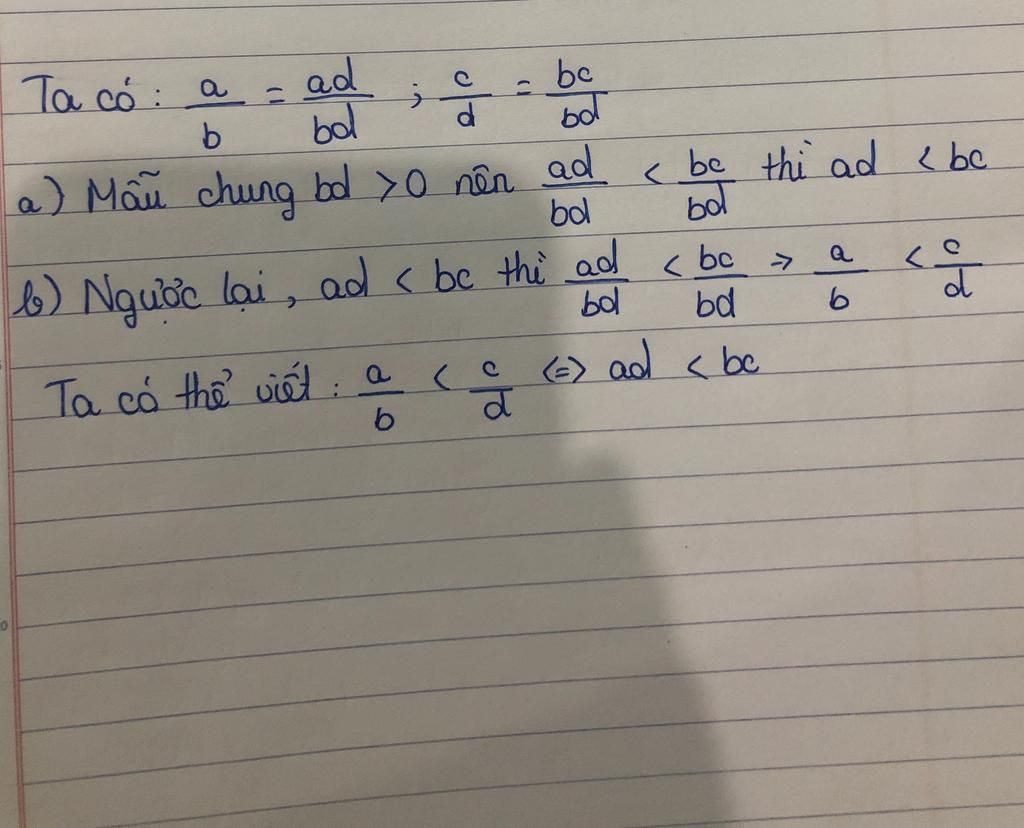 Ta có : a/b = ad/bd ; c/d = bc/bd
a) Mẫu chung bd > 0 nên ad/bd < bc/bd thì ad < bc
b) Ngược lại , ad < bc thì ad/bd < bc/bd => a/b < c/d
Ta có thể viết : a/b < c/d <=> ad < bc